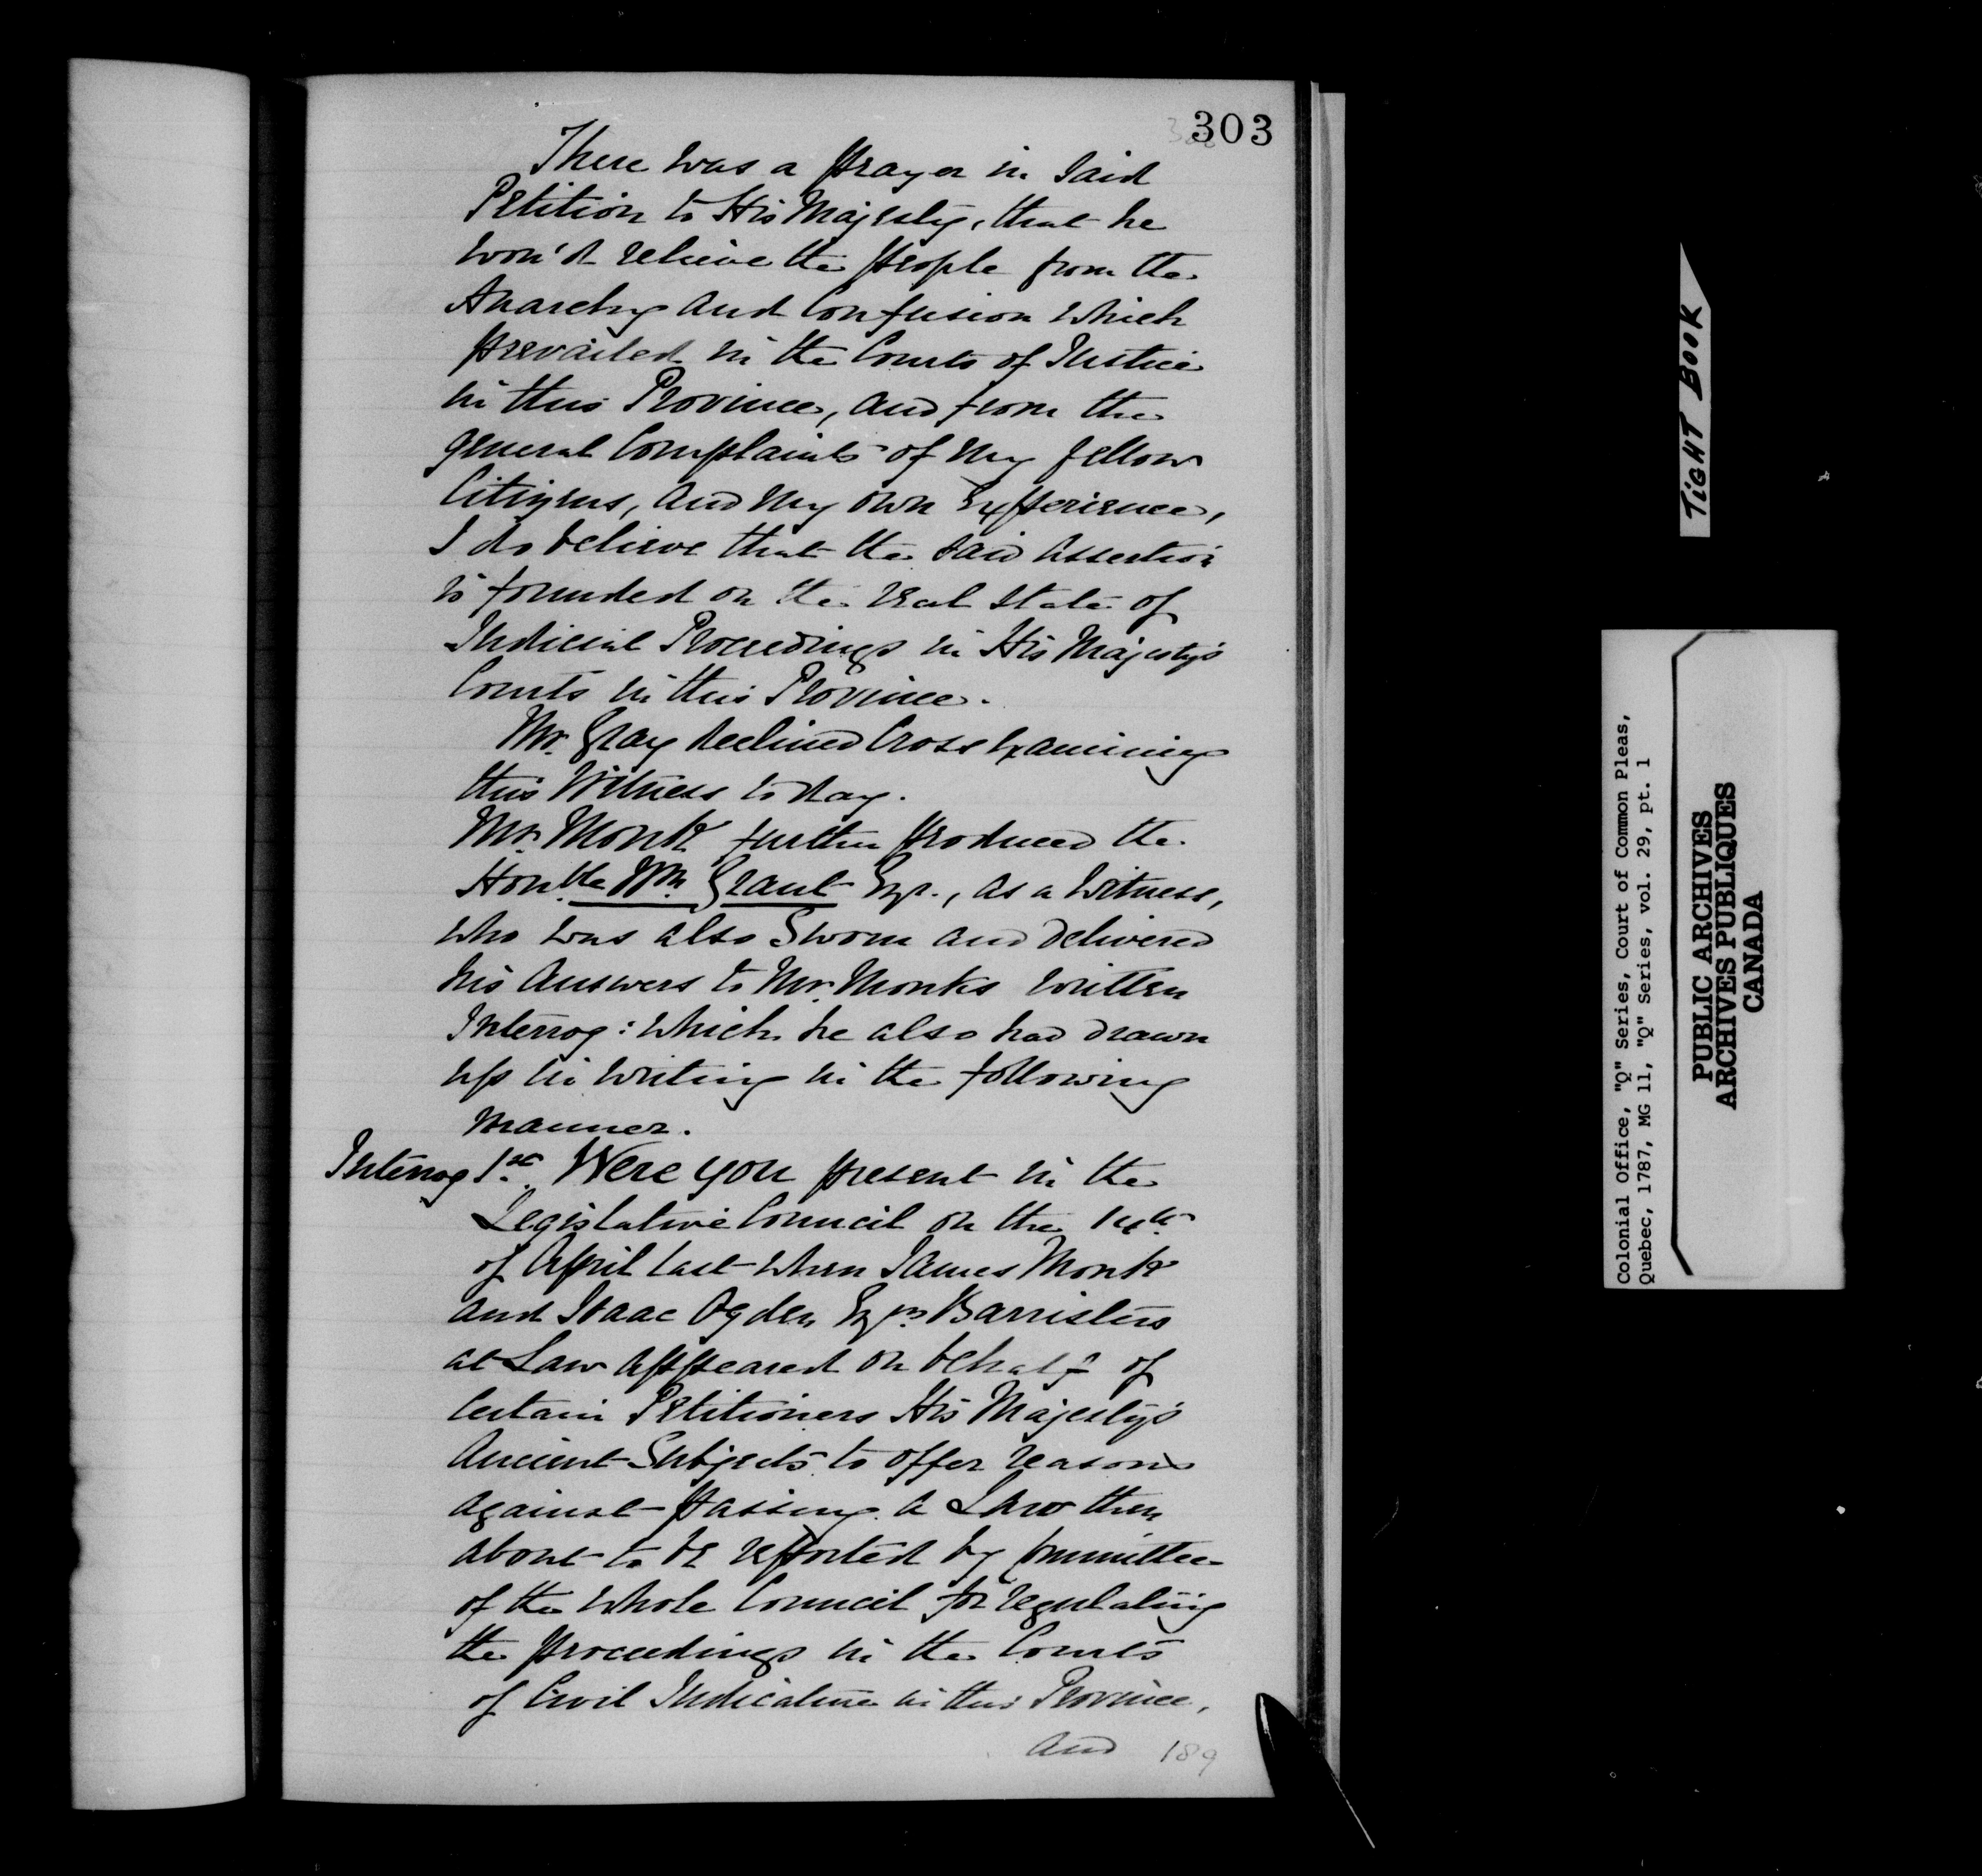 303
There was a prayer in said
Petition to His Majesty, that he
wou'd relieve the people from the
Anarchy and Confusion which
prevailed in the Courts of Justice
in this Province, and from the
general Complaints of my fellow
Citizens, and my own Experience,
I do believe that the said assertion
is founded on the real state of
Judicial Proceedings in His Majesty's
Courts in this Province.
Mr. Gray declined Cross Examining
this Witness to day.
Mr. Monk further produced the
Honble. Wm. Grant Esqr., as a Witness,
who was also Sworn and delivered
his Answers to Mr. Monks written
Interrog: which he also had drawn
up in writing in the following
manner.
Interrog 1st. Were you present in the
Legislative Council on the 14th.
of April last when James Monk
and Isaac Ogden Esqrs. Barristers
at Law appeared on behalf of
certain Petitioners His Majesty's
Ancient Subjects to offer reasons
against passing a Law then
about to be reported by Committee
of the whole Council for regulating
the proceedings in the Courts
of Civil Judicature in this Province,
and
189
TIGHT BOOK
Colonial Office, "Q" Series, Court of Common Pleas,
Quebec, 1787, MG 11, "Q" Series, vol. 29, pt. 1
PUBLIC ARCHIVES
ARCHIVES PUBLIQUES
CANADA